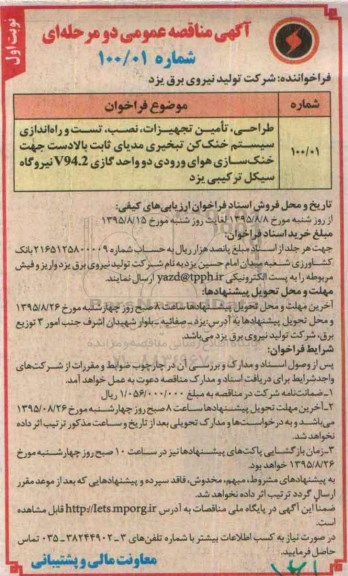 نوبت اول
آگهی مناقصه عمومی دو مرحله‌ای
شماره ۱۰۰/۰۱
فراخواننده: شرکت تولید نیروی برق یزد
شماره
موضوع فراخوان
۱۰۰/۰۱
طراحی، تأمین تجهیزات، نصب، تست و راه‌اندازی
سیستم خنک‌کن تبخیری مدیای ثابت بالادست جهت
خنک‌سازی هوای ورودی دو واحد گازی V94.2 نیروگاه
سیکل ترکیبی یزد
تاریخ و محل فروش اسناد فراخوان ارزیابی‌های کیفی:
از روز شنبه مورخ ۱۳۹۵/۸/۸ لغایت روز شنبه مورخ ۱۳۹۵/۸/۱۵
مبلغ خرید اسناد فراخوان:
جهت هر جلد از اسناد مبلغ پانصد هزار ریال به حساب شماره ۲۱۶۵۱۲۵۸۰۰۰۰۹ بانک
کشاورزی شعبه میدان امام حسین یزد به نام شرکت تولید نیروی برق یزد واریز و فیش
مربوطه را به پست الکترونیکی yazd@tpph.ir ارسال نمایند.
مهلت و محل تحویل پیشنهادها:
آخرین مهلت و محل تحویل پیشنهادها ساعت ۸ صبح روز چهارشنبه مورخ ۱۳۹۵/۸/۲۶
و محل تحویل پیشنهادها به آدرس: یزد ـ صفائیه ـ بلوار شهیدان اشرف جنب امور ۳ توزیع
برق، شرکت تولید نیروی برق یزد می‌باشد.
شرایط فراخوان:
پس از وصول اسناد و مدارک و بررسی آن در چارچوب ضوابط و مقررات از شرکت‌های
واجدشرایط برای دریافت اسناد و مدارک مناقصه دعوت به عمل خواهد آمد.
۱ـ ضمانت‌نامه شرکت در مناقصه به مبلغ ۱/۰۵۶/۰۰۰/۰۰۰ ریال
۲ـ آخرین مهلت تحویل پیشنهادها ساعت ۸ صبح روز چهارشنبه مورخ ۱۳۹۵/۰۸/۲۶
می‌باشد و به درخواست‌ها و مدارک تحویلی بعد از تاریخ و ساعت مذکور ترتیب اثر داده
نخواهد شد.
۳ـ زمان بازگشایی پاکت‌های پیشنهادها نیز در ساعت ۱۰ صبح روز چهارشنبه مورخ
۱۳۹۵/۸/۲۶ خواهد بود.
به پیشنهادهای مشروط، مبهم، مخدوش، فاقد سپرده و پیشنهادهایی که بعد از موعد مقرر
ارسال گردد ترتیب اثر داده نخواهد شد.
ضمنا این آگهی در پایگاه ملی مناقصات به آدرس http://Iets.mporg.ir قابل مشاهده
است.
در صورت نیاز به کسب اطلاعات بیشتر با شماره تلفن‌های ۳ـ۳۸۲۴۴۹۰۲ ـ ۰۳۵ تماس
حاصل فرمایید.
معاونت مالی و پشتیبانی